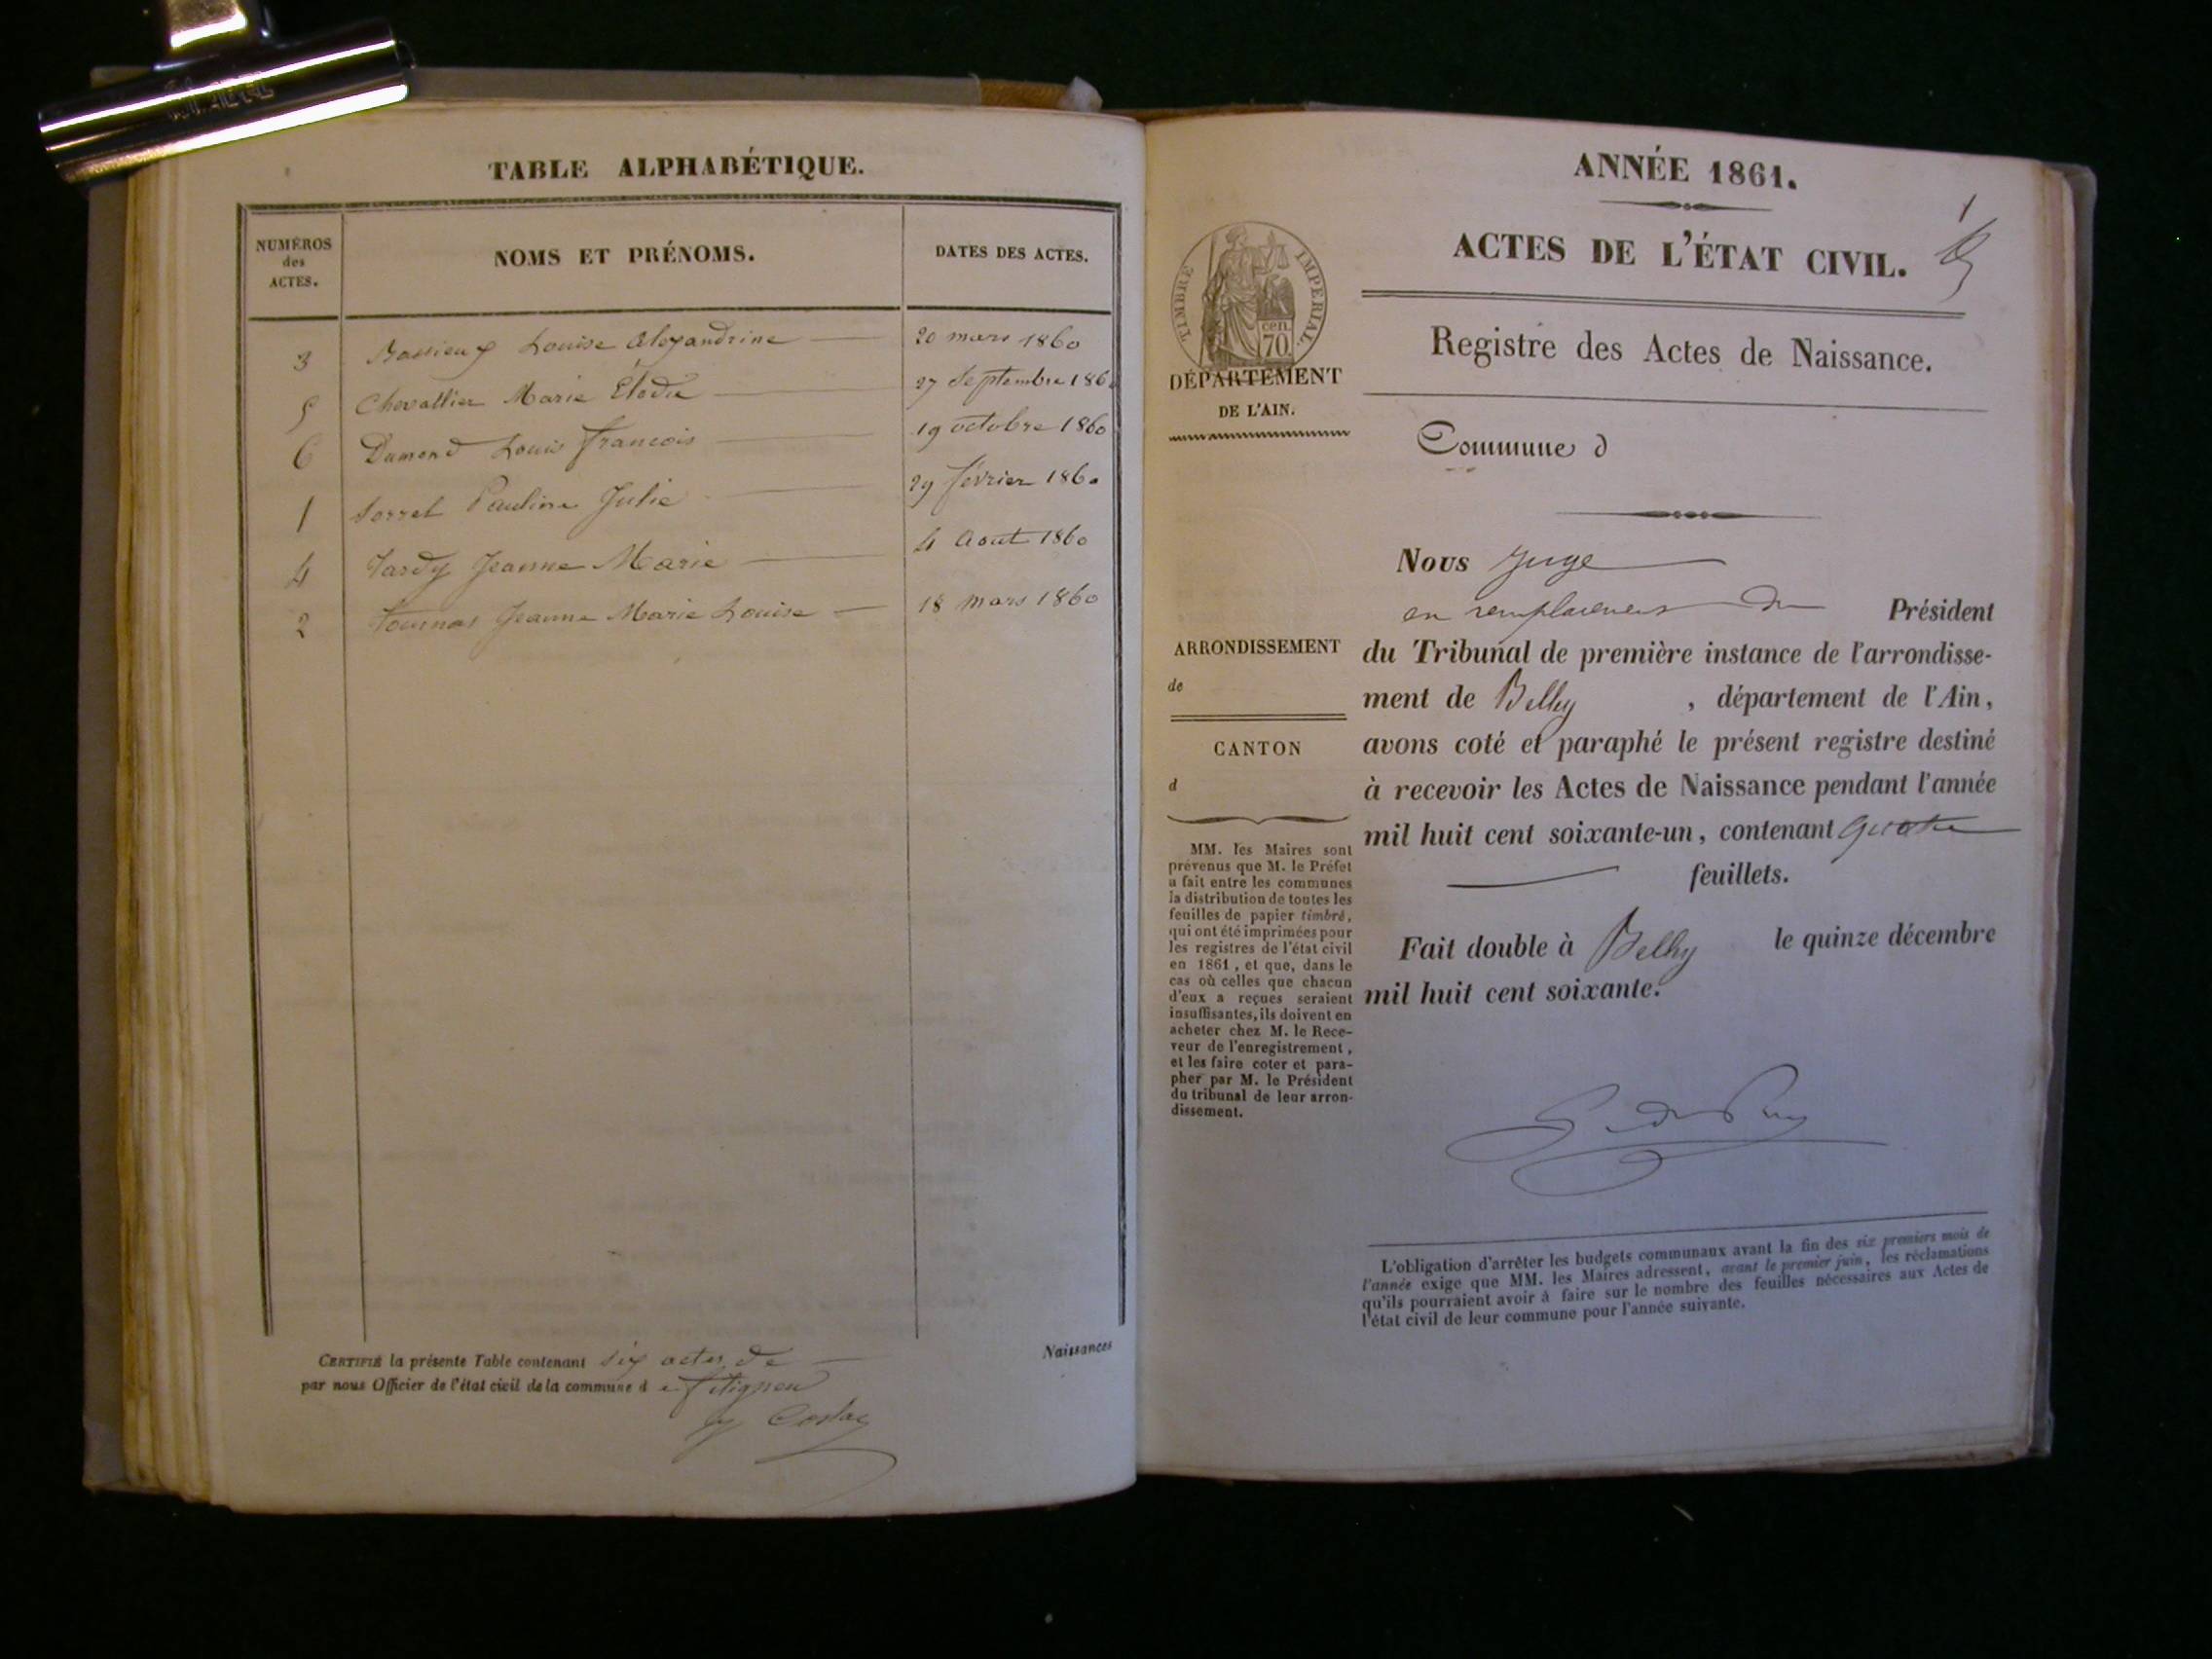 TABLE ALPHABÉTIQUE.
NUMÉROS
des
ACTES.
NOMS ET PRÉNOMS.
DATES DES ACTES.
3 Louise Alexandrine 20 mars 1860
5 Chevallier Marie Élodie 27 Septembre 186
6 Dumond Louis François 19 octobre 1860
1 Sorret Pauline Julie 29 février 1860
4 Tardy Jeanne Marie 4 Aout 1860
2 Jeanne Marie Louise 18 mars 1860
CERTIFIÉ la présente Table contenant six actes de Naissances
par nous Officier de l'état civil de la commune d
ANNÉE 1861.
1
ACTES DE L'ÉTAT CIVIL.
TIMBRE IMPÉRIAL.
cen.
70
Registre des Actes de Naissance.
DÉPARTEMENT
DE L'AIN.
Commune d
Nous Juge
en remplacement du Président
ARRONDISSEMENT
de
CANTON
d
du Tribunal de première instance de l'arrondisse-
ment de Belley , département de l'Ain,
avons coté et paraphé le présent registre destiné
à recevoir les Actes de Naissance pendant l'année
mil huit cent soixante-un, contenant quatre
feuillets.
Fait double à Belley le quinze décembre
mil huit cent soixante.
MM. les Maires sont
prévenus que M. le Préfet
a fait entre les communes
la distribution de toutes les
feuilles de papier timbré,
qui ont été imprimées pour
les registres de l'état civil
en 1861, et que, dans le
cas où celles que chacun
d'eux a reçues seraient
insuffisantes, ils doivent en
acheter chez M. le Rece-
veur de l'enregistrement,
et les faire coter et para-
pher par M. le Président
du tribunal de leur arron-
dissement.
L'obligation d'arrêter les budgets communaux avant la fin des six premiers mois de
l'année exige que MM. les Maires adressent, avant le premier juin, les réclamations
qu'ils pourraient avoir à faire sur le nombre des feuilles nécessaires aux Actes de
l'état civil de leur commune pour l'année suivante.